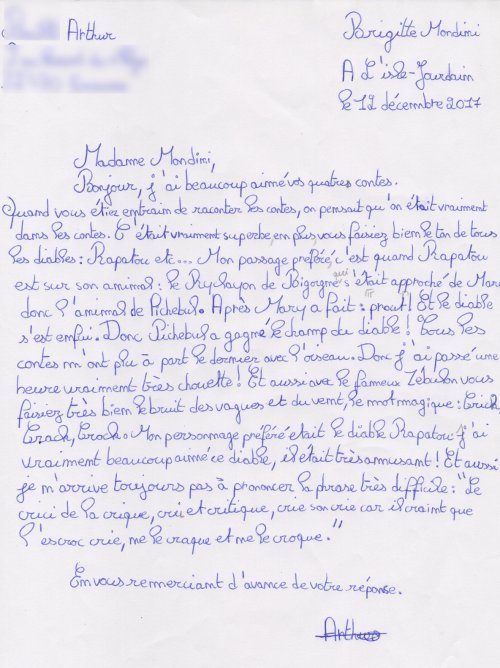 Arthur
Brigitte Mondini
A L'isle-Jourdain
le 12 décembre 2017
Madame Mondini,
Bonjour, j'ai beaucoup aimé vos quatres contes.
Quand vous étiez entraim de raconter les contes, on pensait qu'on était vraiment
dans les contes. C'était vraiment superbe, en plus vous faisiez bien le ton de tous
les diables : Rapatou etc... Mon passage préféré, c'est quand Rapatou
est sur son animal : le Rychayon de Bigorgne qui s'était approché de Mary
donc l'animal de Pichebul. Après Mary a fait : prout ! Et le diable
s'est enfui. Donc Pichebul a gagné le champ du diable ! Tous les
contes m'ont plu à part le dernier avec l'oiseau. Donc j'ai passé une
heure vraiment très chouette ! Et aussi avec le fameux Zébulon vous
faisiez très bien le bruit des vagues et du vent, le mot magique : Crick,
Crack, Crock. Mon personnage préféré était le diable Rapatou j'ai
vraiment beaucoup aimé ce diable, il était très amusant ! Et aussi
je m'arrive toujours pas à prononcer la phrase très difficile : "Le
crici de la crique, crii et critique, crie son crie car il craint que
l'escroc crie, me le craque et me le croque."
En vous remerciant d'avance de votre réponse.
Arthur